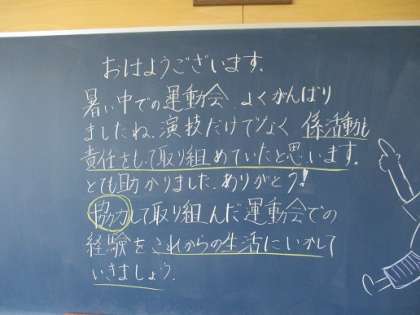 おはようございます。
暑い中での運動会 よくがんばり
ましたね。演技だけでなく 係活動も
責任をもって取り組めていたと思います。
とても助かりました。ありがとう!
協力して取り組んだ運動会での
経験をこれからの生活にいかして
いきましょう。